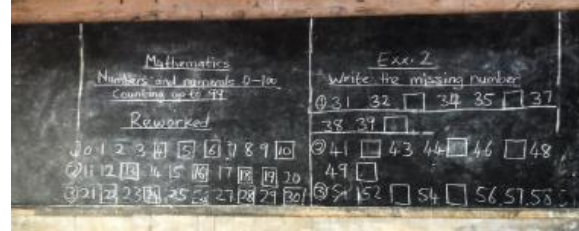 Mathematics
Numbers and numerals 0-100
Counting up to 99
Reworked
① 0 1 2 3 4 5 6 7 8 9 10
② 11 12 13 14 15 16 17 18 19 20
③ 21 22 23 24 25 27 28 29 30
Exx: 2
Write the missing number
① 31 32 □ 34 35 □ 37
38 39 □
② 41 □ 43 44 □ 46 □ 48
49 □
③ 51 52 □ 54 □ 56 57 58